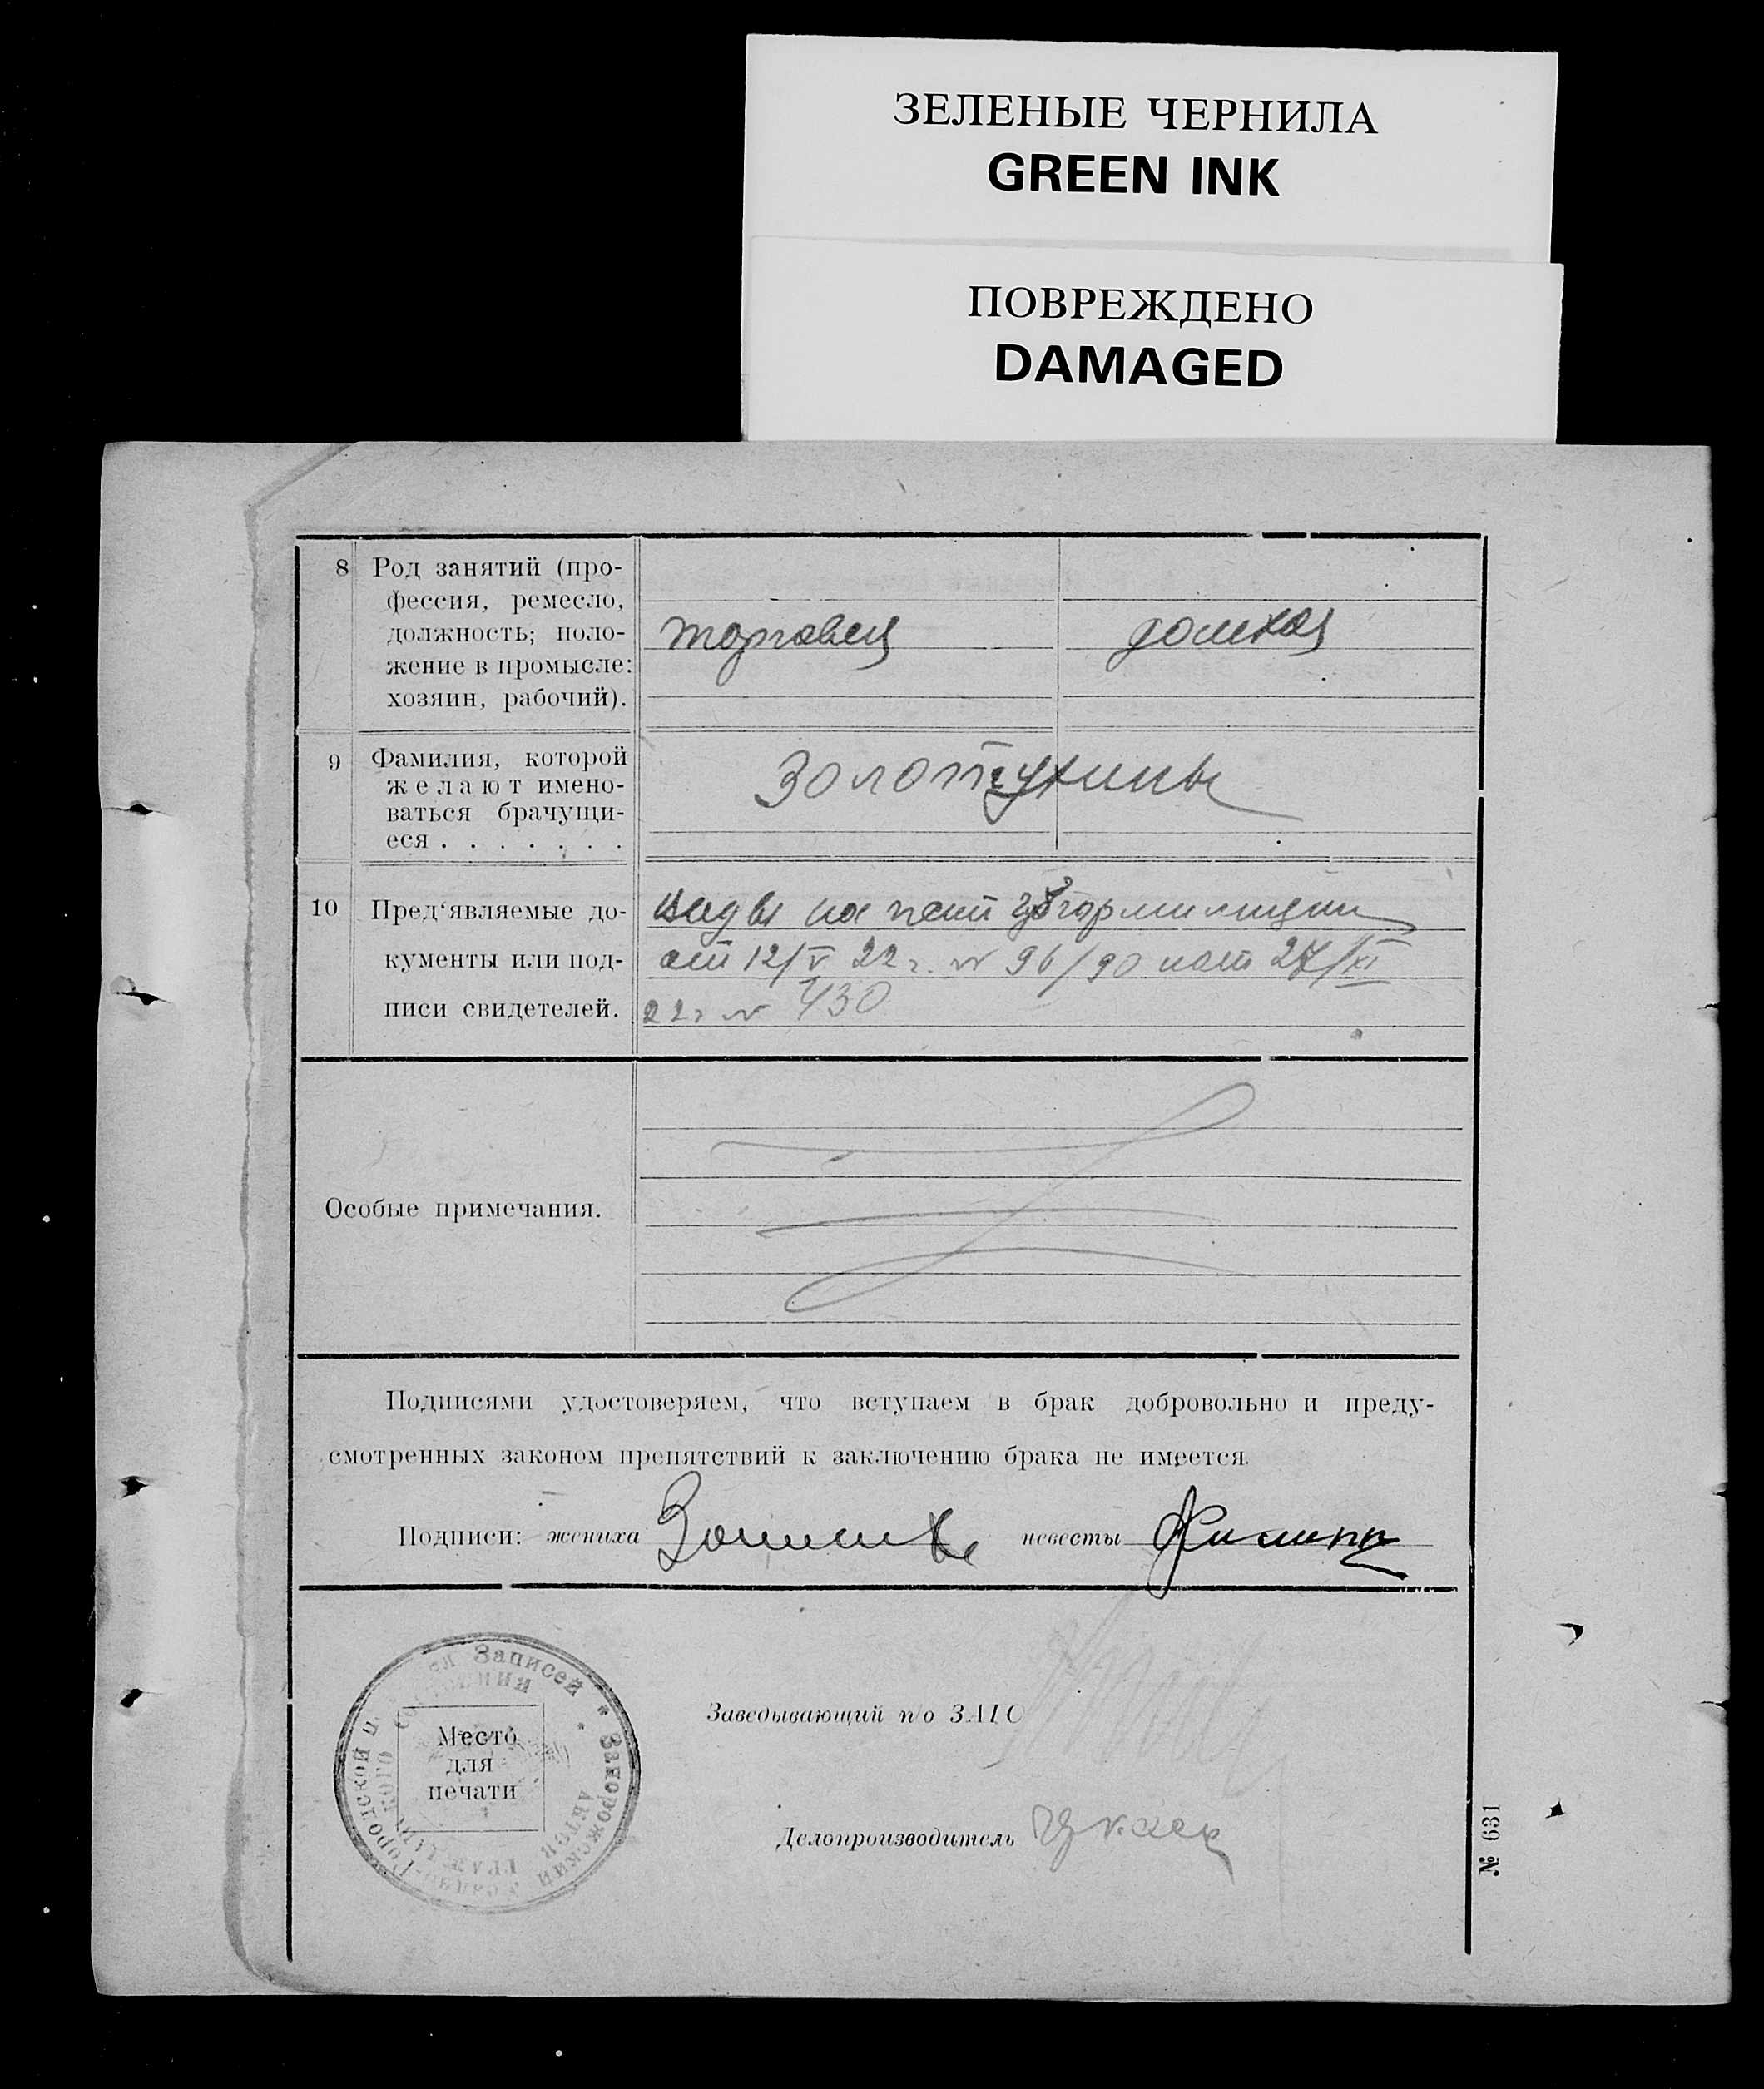 ЗЕЛЕНЫЕ ЧЕРНИЛА
GREEN INK
ПОВРЕЖДЕНО
DAMAGED
8 Род занятий (про-
фессия, ремесло,
должность; поло-
жение в промысле:
хозяин, рабочий).
торговец
домхоз
9 Фамилия, которой
желают имено-
ваться брачущи-
еся . . . . . . .
Золотухины
10 Пред‘являемые до-
кументы или под-
писи свидетелей.
Виды на
от 12/V 22 г. № 96/90 и от 27/XI
22 г №
Особые примечания.
Подписями удостоверяем, что вступаем в брак добровольно и преду-
смотренных законом препятствий к заключению брака не имеется.
Подписи: жениха
невесты
Записей * Запорожский
Место
для
печати
Заведывающий п/о ЗАГС
Делопроизводитель
№ 631